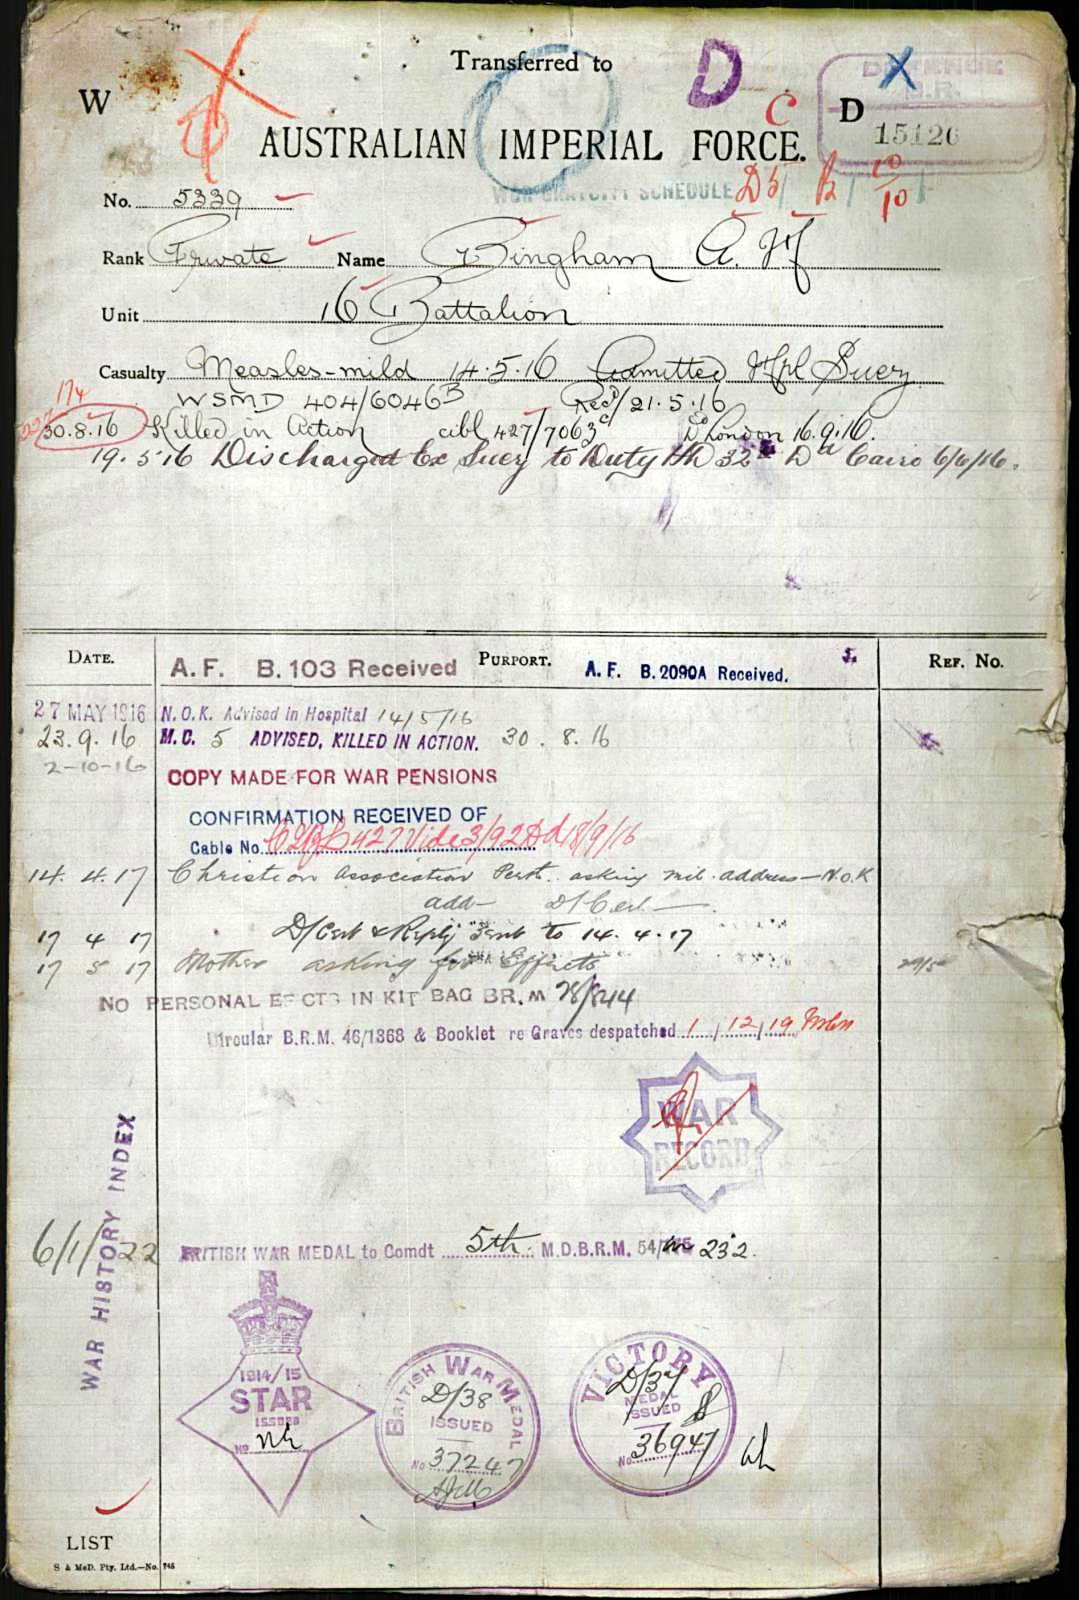 Transferred to
D
C
W
D
DEFENCE
15126
AUSTRALIAN IMPERIAL FORCE.
No. 5339
WAR GRATUITY SCHEDULE
10
10
Rank Private Name Bingham A. H
Unit 16 Battalion
Casualty Measles-mild 14.5.16 Admitted Hpl Suez
WSMD 404/6046B Recd/21.5.16
174
30.8.16 Killed in Action cibl 427/7063c Do London 16.9.16.
19.5.16 Discharged Ex Suez to Duty Hh 32 Da Cairo 6/6/16.
DATE. PURPORT. REF. No.
A.F. B.103 Received A. F. B.2090A Received.
27 MAY 1916 N.O.K. Advised in Hospital 14/5/16
23.9.16 M.C. 5 ADVISED, KILLED IN ACTION. 30.8.16
2-10-16
COPY MADE FOR WAR PENSIONS
CONFIRMATION RECEIVED OF
Cable No. 427 Vide 3/92 Dd 18/9/16
14.4.17 Christian Association Perth. asking mil. address — N.O.K
add— D/Cert —
17 4 17 D/Cert & Reply sent to 14.4.17
17 5 17 Mother asking for Effects
NO PERSONAL EFFECTS IN KIT BAG BR. M 28/844
Circular B.R.M. 46/1368 & Booklet re Graves despatched 1/12/19
WAR
RECORD
WAR HISTORY INDEX
6/1/22 BRITISH WAR MEDAL to Comdt 5th M.D.B.R.M. 54/ 232.
1914/15
STAR
ISSUED
No
BRITISH WAR MEDAL
D/38
ISSUED
No 37247
VICTORY
D/37
MEDAL
ISSUED
No. 36947
LIST
S & McD. Pty. Ltd.—No. 745